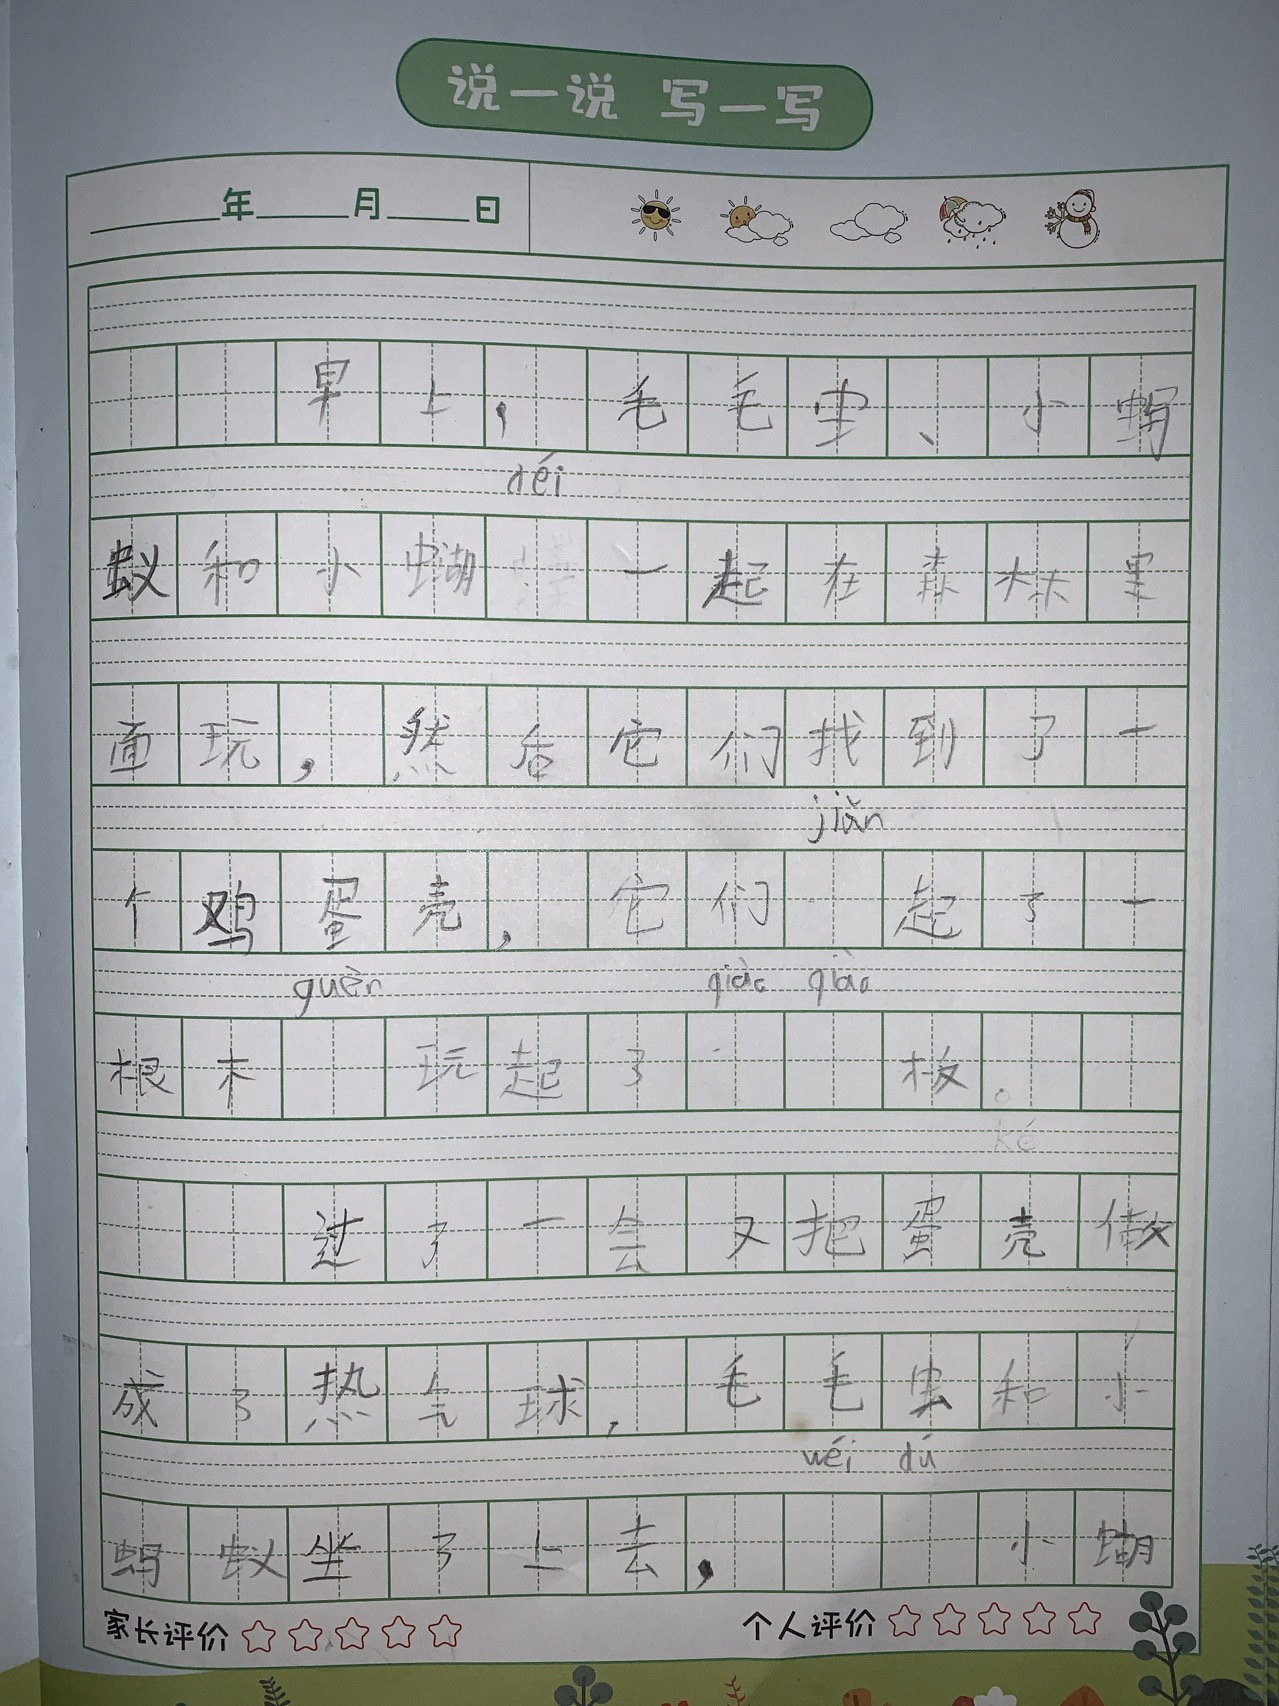 说一说 写一写
年 月 日
早上，毛毛虫、小蚂
déi
蚁和小蝴 一起在森林里
面玩，然后它们找到了一
jiǎn
个鸡蛋壳，它们 起了一
guèn qiāo qiào
根木 玩起了 板。
ké
过了一会又把蛋壳做
成了热气球，毛毛虫和小
wéi dú
蚂蚁坐了上去， 小蝴
家长评价 个人评价